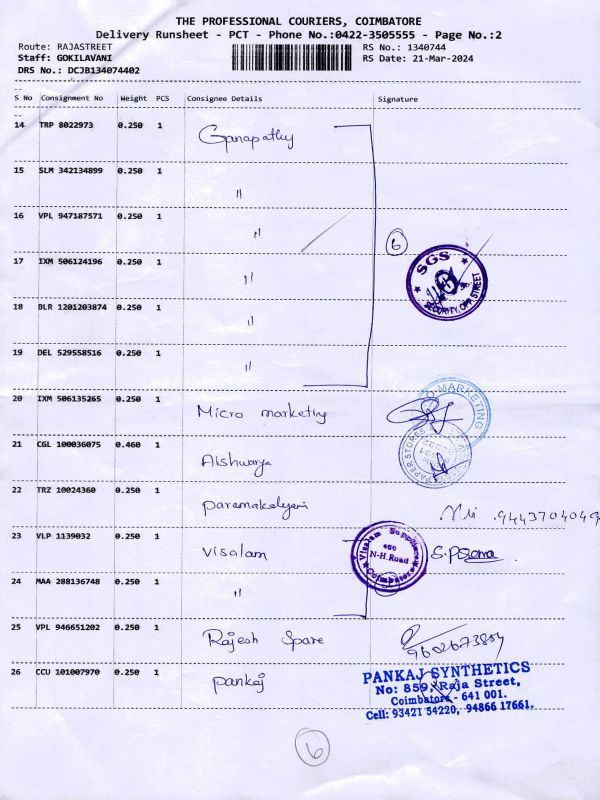 THE PROFESSIONAL COURIERS, COIMBATORE
Delivery Runsheet - PCT - Phone No.:0422-3505555 - Page No.:2
Route: RAJASTREET
RS No.: 1340744
Staff: GOKILAVANI
RS Date: 21-Mar-2024
DRS No.: DCJB134074402
S No Consignment No Weight PCS Consignee Details Signature
14 TRP 8022973 0.250 1 Ganapathy
15 SLM 342134899 0.250 1 "
16 VPL 947187571 0.250 1 "
6
17 IXM 506124196 0.250 1 "
SGS
SECURITY, OPP. STREET
18 BLR 1201203874 0.250 1 "
19 DEL 529558516 0.250 1 "
20 IXM 506135265 0.250 1 Micro marketing
O-MARKETING
21 CGL 100036075 0.460 1 Aishwarya
PAPER STORES
22 TRZ 10024360 0.250 1 Paramakalyani
9443704049
23 VLP 1139032 0.250 1 Visalam
Visalam Supplies
N-H.Road
Coimbatore
24 MAA 288136748 0.250 1 "
25 VPL 946651202 0.250 1 Rajesh Spare
26 CCU 101007970 0.250 1 Pankaj
PANKAJ SYNTHETICS
No: 859, Raja Street,
Coimbatore - 641 001.
Cell: 93421 54220, 94866 17661.
6